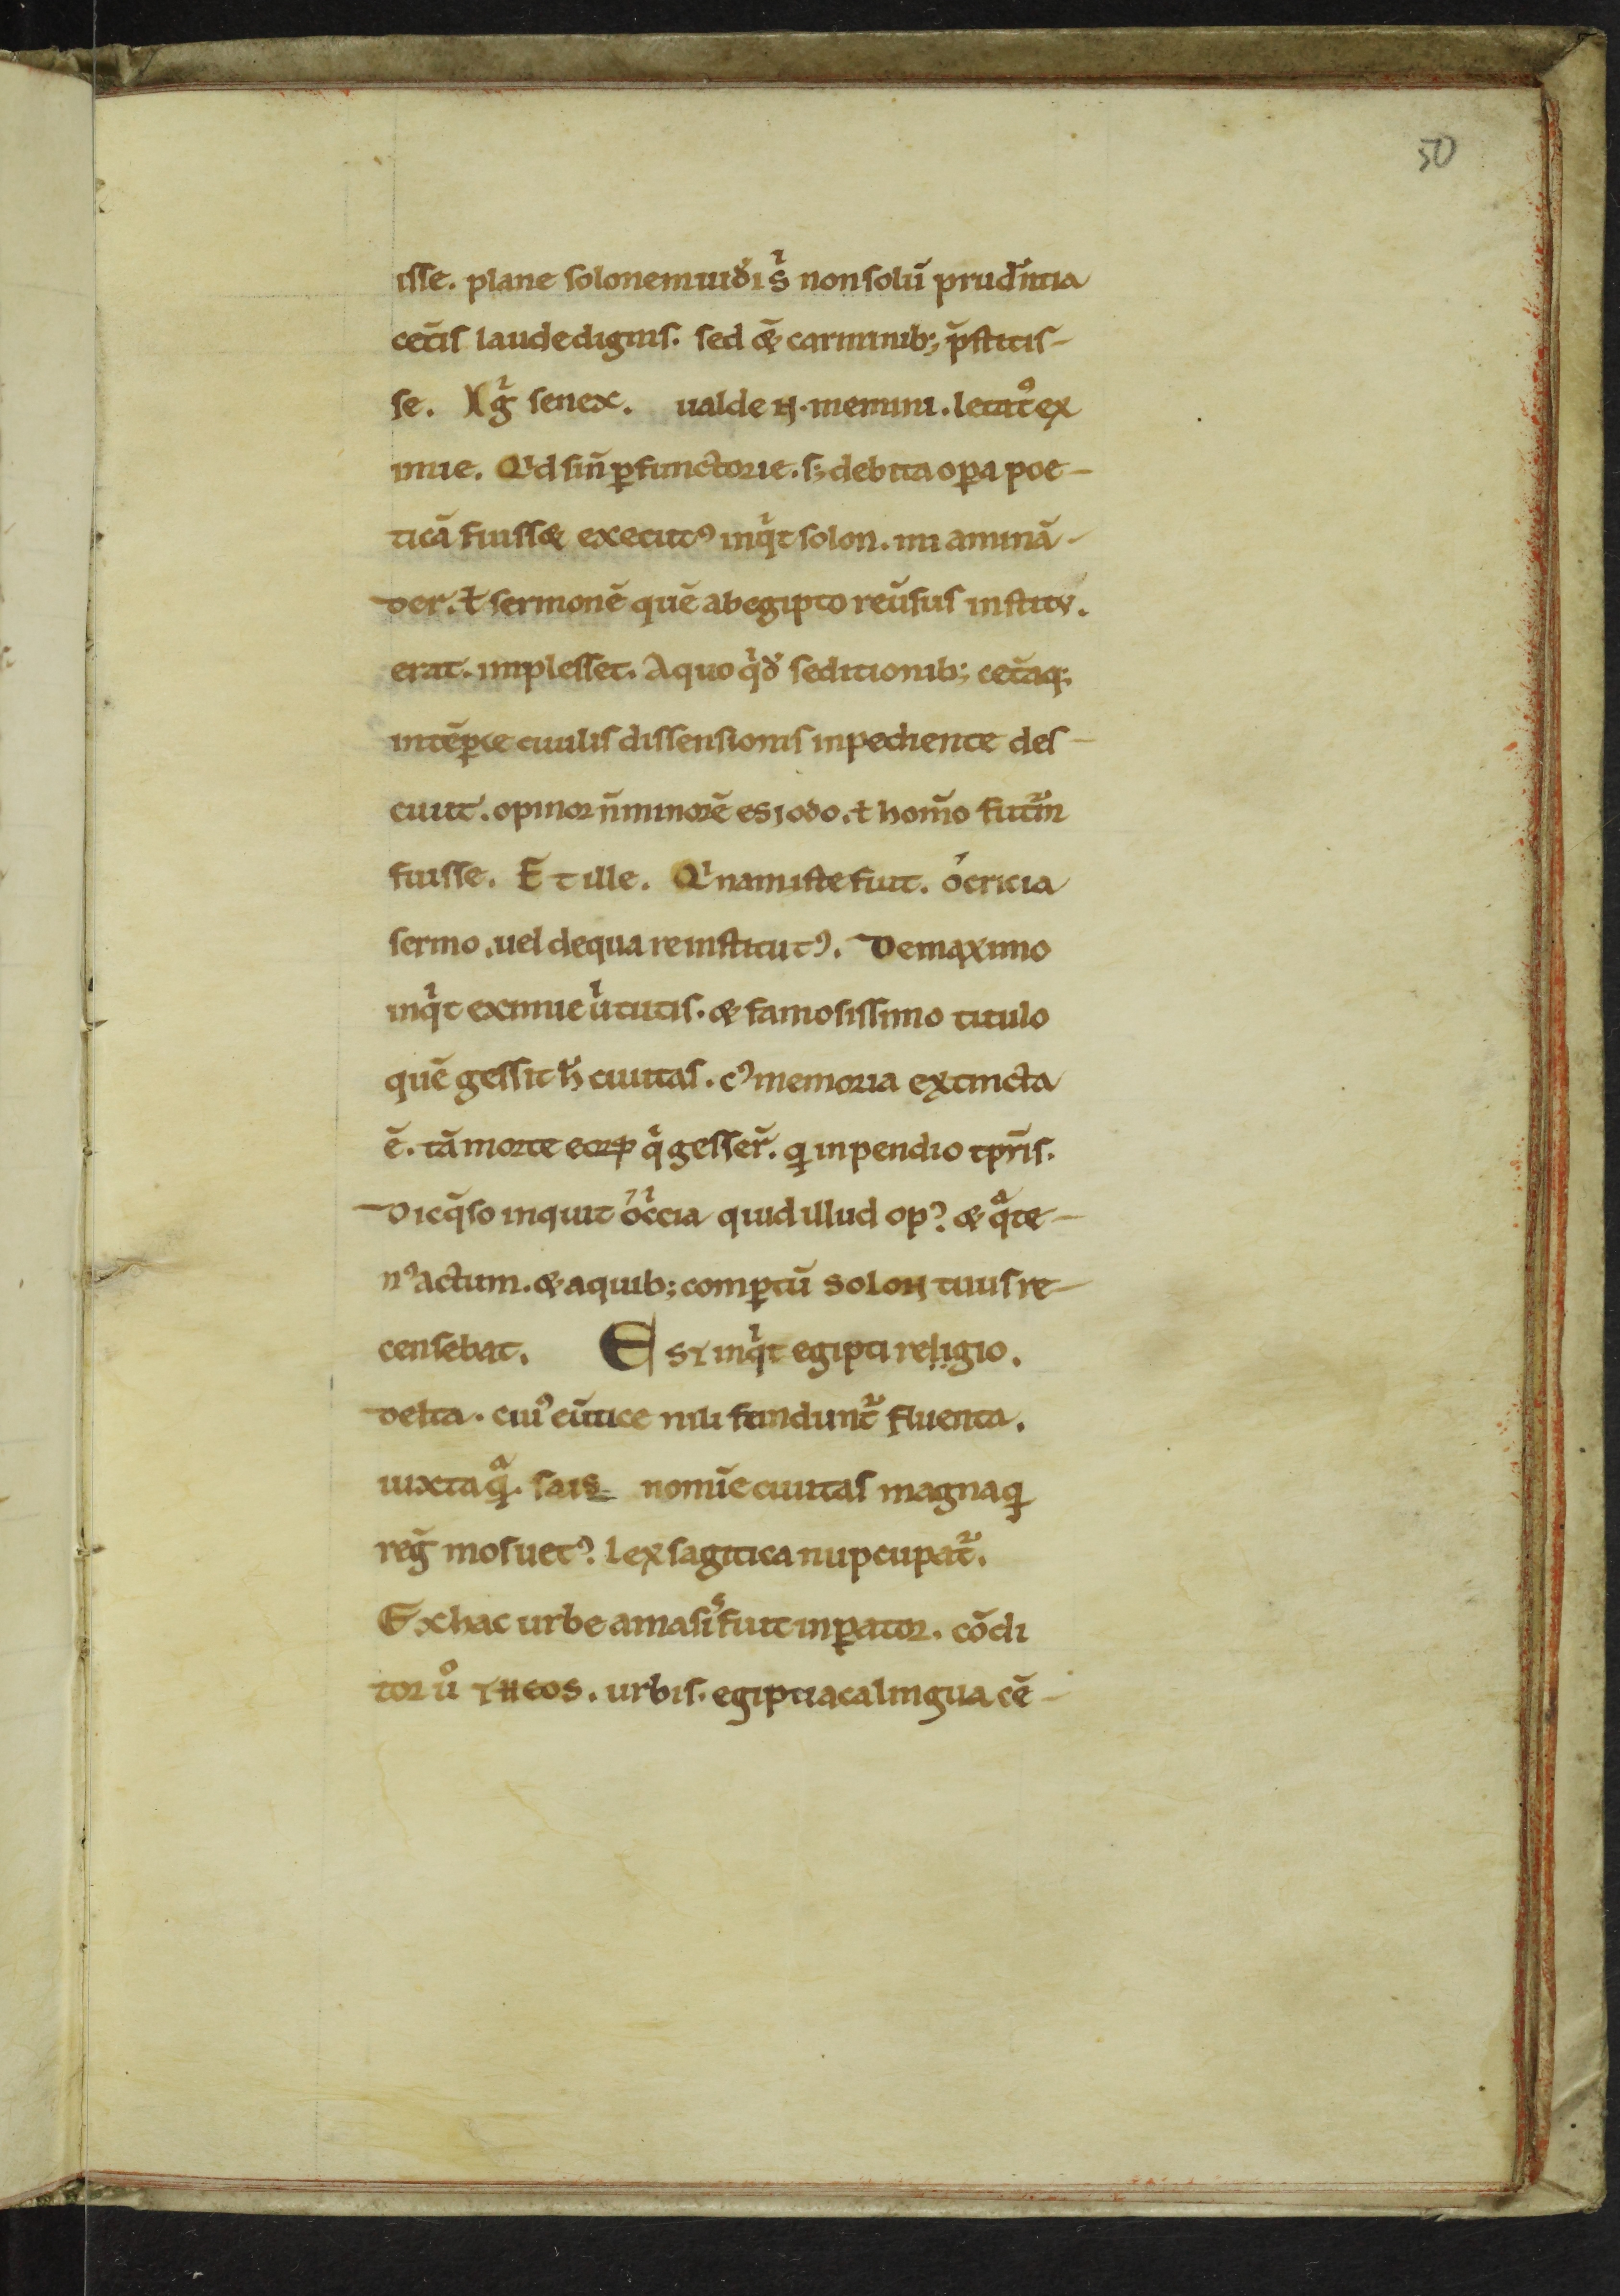 50
isse. plane solonem uiderı sͥ non solū prud̄ntia
cet̄is laude dignis. sed &̄ carminib; p̄stitis-
se. Igͥ senex. ualde n. memini. letatꝰ ex
imie. Qͥd si n̄ ꝑfunctorie. s; debita oꝑa poe-
ticā fuiss& executꝰ inqͥt solon. mi aminā-
der. ł sermonē quē ab egipto reūsus institu.
erat. implesset. A quo qͥd seditionib; cet̄aq;
intēꝑie ciuilis dissensionis inpediente des-
ciuit. opinor n̄ minorē esiodo. ł hom̄o futr̄m
fuisse. Et ille. Qͥnam iste fuit. o cricia
sermo. uel de qua re institutꝰ. De maximo
inqͥt eximie uͥtutis. & famosissimo titulo
quē gessit h̄ ciuitas. cꝰ memoria extincta
ē. tā morte eoꝝ qͥ gesser̄. ꝗ inpendio tpr̄is.
Dic q̄so inquit o cͥcia quid illud opꝰ. & qͣte-
nꝰ actum. & a quib; comꝑtū solon tuus re-
censebat. Est inqͥt egipti religio.
delta. cuiꝰ eūtice nili fundunt᷑ fluenta.
iuxta qͣ. sais nomīe ciuitas magna ꝗ
reḡ mos uetꝰ. lex sagitica nupcupat᷑.
Ex hac urbe amasis fuit inꝑator. cōdi
tor uͦ yneos. urbis. egiptiaca lingua cē-